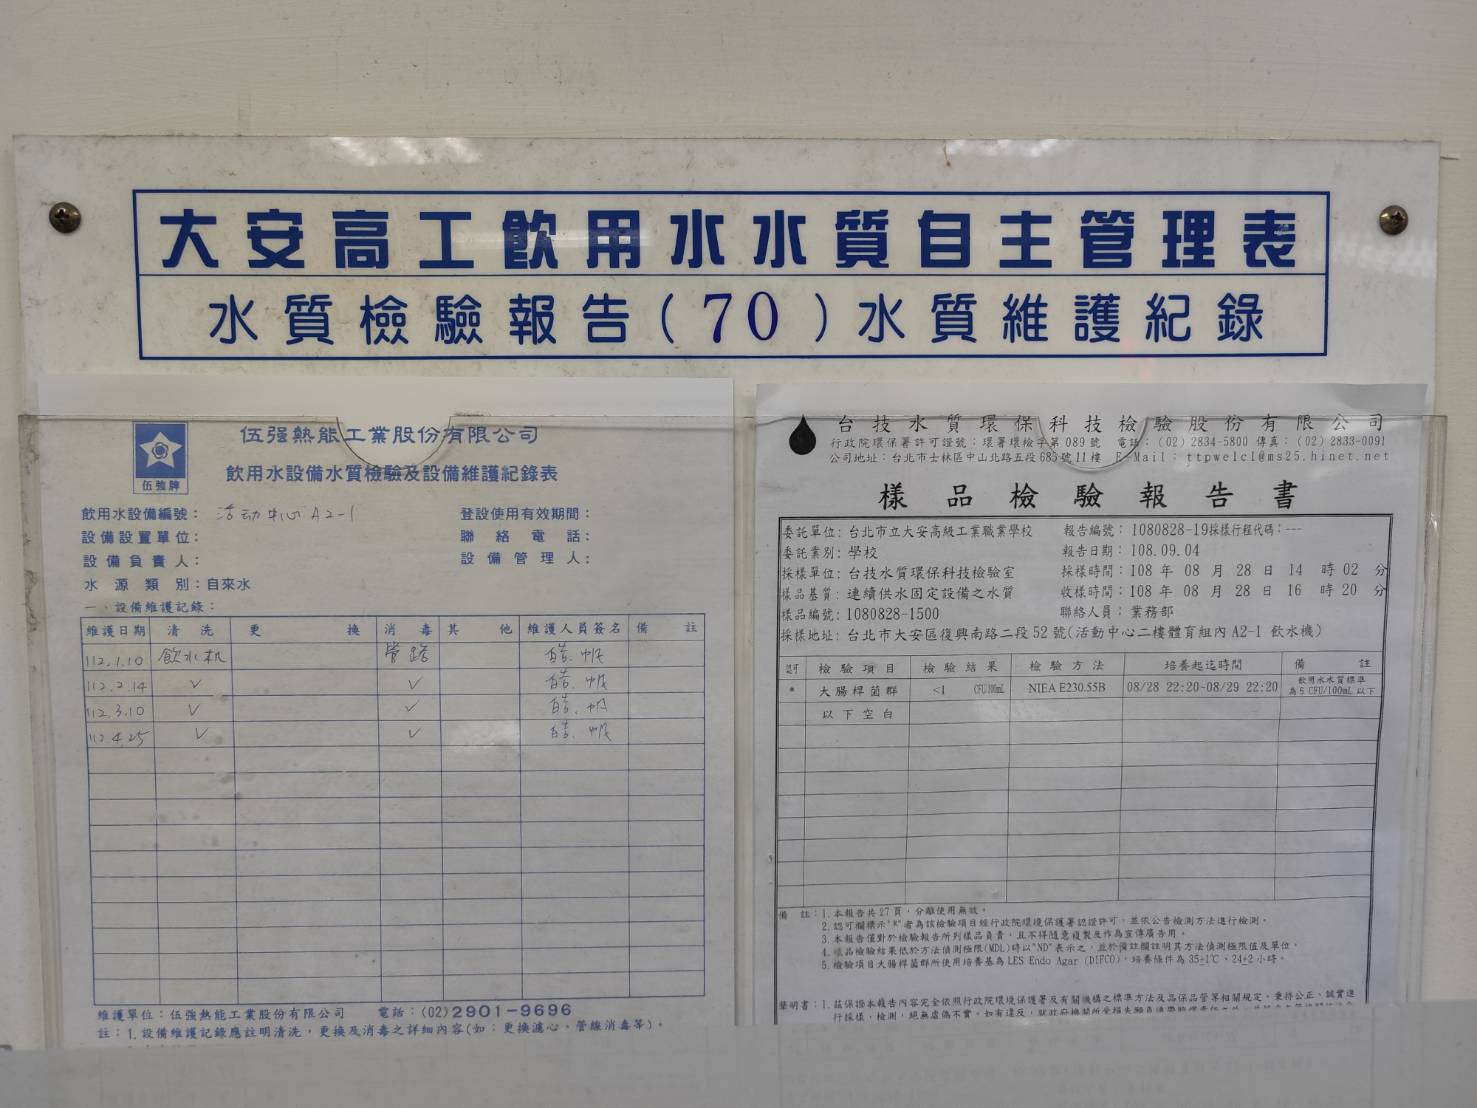 大安高工飲用水水質自主管理表
水質檢驗報告(70)水質維護紀錄
伍強牌
伍强熱能工業股份有限公司
飲用水設備水質檢驗及設備維護紀錄表
飲用水設備編號：活动中心 A2-1
登設使用有效期間：
設備設置單位：
聯絡電話：
設備負責人：
設備管理人：
水源類別：自來水
一、設備維護記錄：
維護日期 清洗 更換 消毒 其他 維護人員簽名 備註
112.1.10 飲水机 管路
112.2.14 ✓ ✓
112.3.10 ✓ ✓
112.4.25 ✓ ✓
維護單位：伍強熱能工業股份有限公司 電話：(02)2901-9696
註：1.設備維護記錄應註明清洗，更換及消毒之詳細內容(如：更換濾心、管線消毒等)。
台技水質環保科技檢驗股份有限公司
行政院環保署許可證號：環署環檢字第089號 電話：(02)2834-5800 傳真：(02)2833-0091
公司地址：台北市士林區中山北路五段685號11樓 E-Mail：ttpwelcl@ms25.hinet.net
樣品檢驗報告書
委託單位：台北市立大安高級工業職業學校 報告編號：1080828-19採樣行程代碼：---
委託業別：學校 報告日期：108.09.04
採樣單位：台技水質環保科技檢驗室 採樣時間：108年08月28日14時02分
樣品基質：連續供水固定設備之水質 收樣時間：108年08月28日16時20分
樣品編號：1080828-1500 聯絡人員：業務部
採樣地址：台北市大安區復興南路二段52號(活動中心二樓體育組內A2-1 飲水機)
認可 檢驗項目 檢驗結果 檢驗方法 培養起迄時間 備註
* 大腸桿菌群 <1 CFU/100mL NIEA E230.55B 08/28 22:20~08/29 22:20 飲用水水質標準為6 CFU/100mL以下
以下空白
備註：1.本報告共27頁，分離使用無效。
2.認可欄標示"*"者為該檢驗項目經行政院環境保護署認證許可，並依公告檢測方法進行檢測。
3.本報告僅對於檢驗報告所列樣品負責，且不得隨意複製及作為宣傳廣告用。
4.樣品檢驗結果低於方法偵測極限(MDL)時以"ND"表示之，並於備註欄註明其方法偵測極限值及單位。
5.檢驗項目大腸桿菌群所使用培養基為LES Endo Agar (DIFCO)，培養條件為35±1℃、24±2小時。
聲明書：1.茲保證本報告內容完全依照行政院環境保護署及有關機構之標準方法及品保品管等相關規定，秉持公正、誠實進
行採樣、檢測，絕無虛偽不實，如有違反，